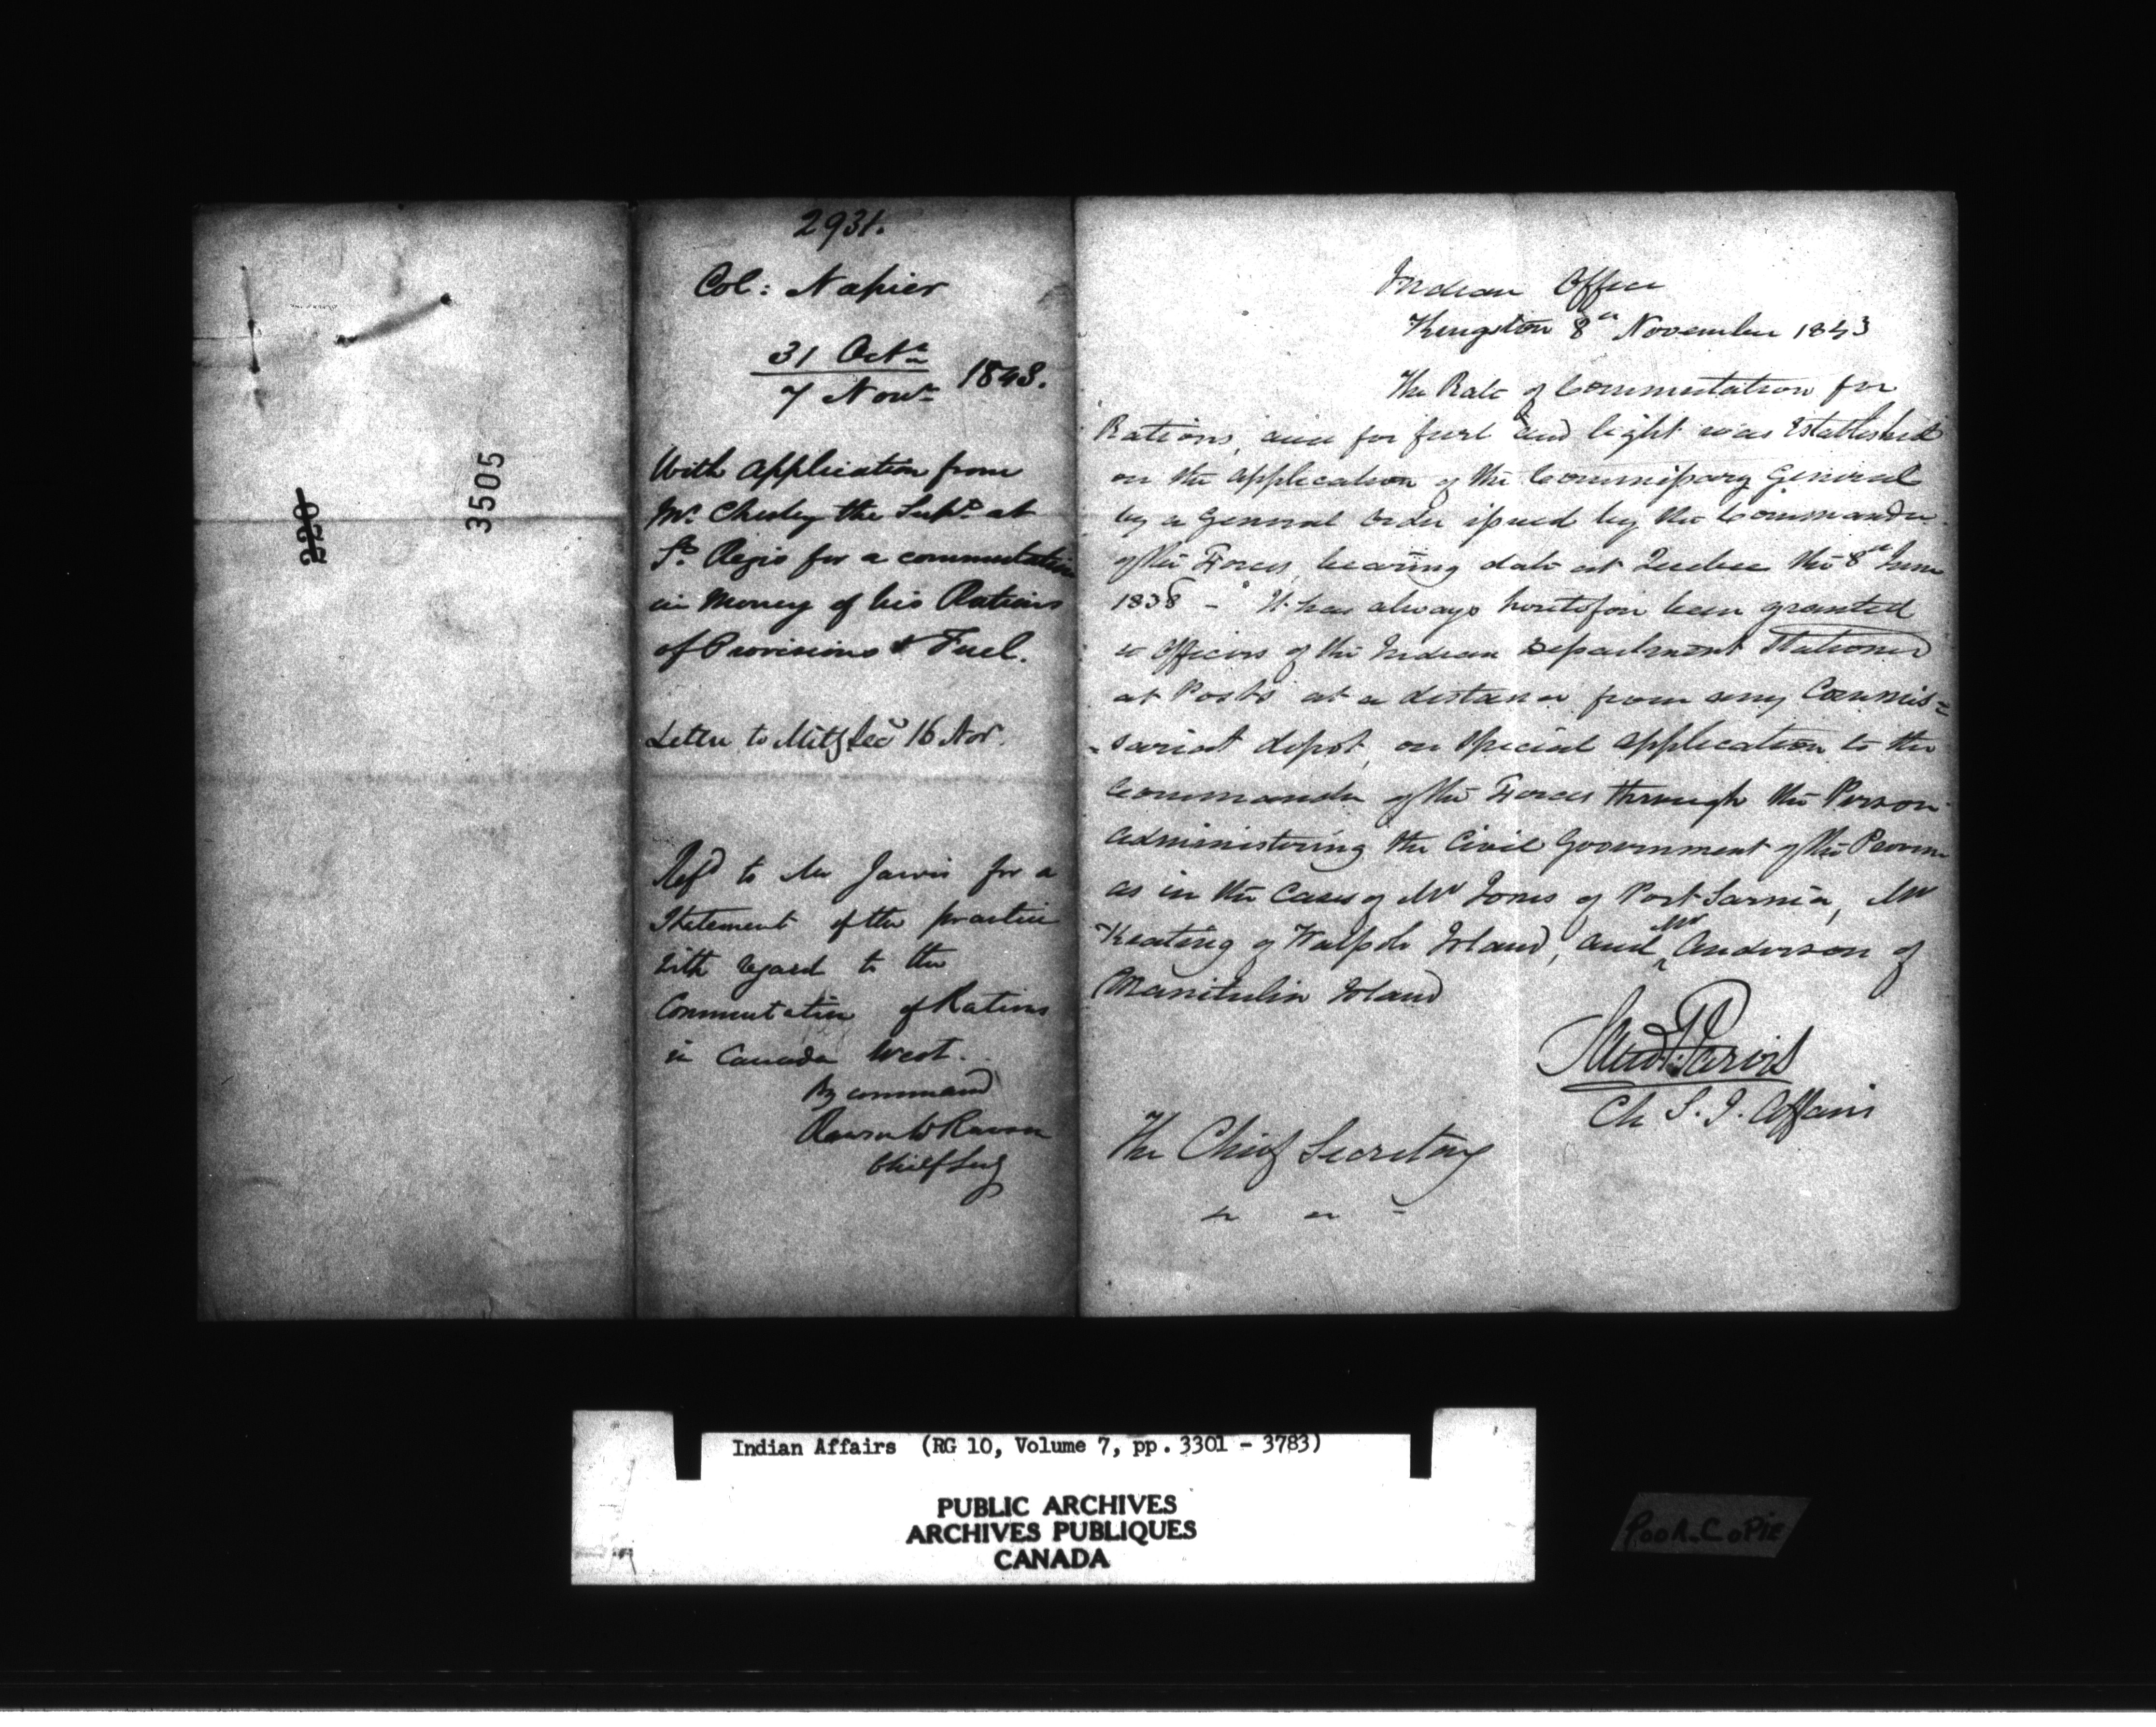 220
3505
2931.
Col: Napier
31 Octr
7 Novr 1843.
With Application from
Mr. Chesley the Supt. at
St. Regis for a commutation
in Money of his Rations
of Provisions & Fuel.
Letter to Mily Secy 16 Nov.
Refd to Mr Jarvis for a
Statement of the practice
with regard to the
Commutation of Rations
in Canada West.
By command
Rawson W Rawson
Chief Secy
Indian Office
Kingston 8th November 1843
The Rate of Commutation for
Rations, and for fuel and light was established
on the application of the Commissary General
by a General Order issued by the Commander
of the Forces, bearing date at Quebec the 8th June
1838 - It has always heretofore been granted
to Officers of the Indian Department Stationed
at Posts at a distance from any Commis=
=sariat depot, on special application to the
Commander of the Forces through the Person
administering the Civil Government of the Province
as in the cases of Mr Jones of Port Sarnia, Mr
Keating of Walpole Island, and Mr Anderson of
Manitulin Island
Saml P. Jarvis
Ch S. I. Affairs
The Chief Secretary
Indian Affairs (RG 10, Volume 7, pp. 3301 - 3783)
PUBLIC ARCHIVES
ARCHIVES PUBLIQUES
CANADA
POOR COPIE